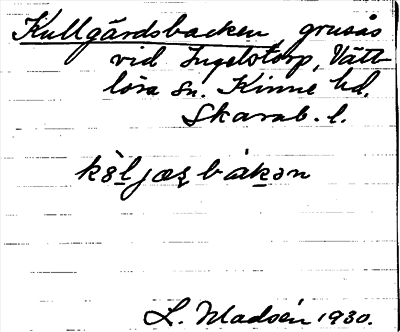 Kullgårdsbacken, grusås
vid Ingelstorp, Vätt-
lösa sn. Kinne hd.
Skarab. l.
L. Madsén 1930.